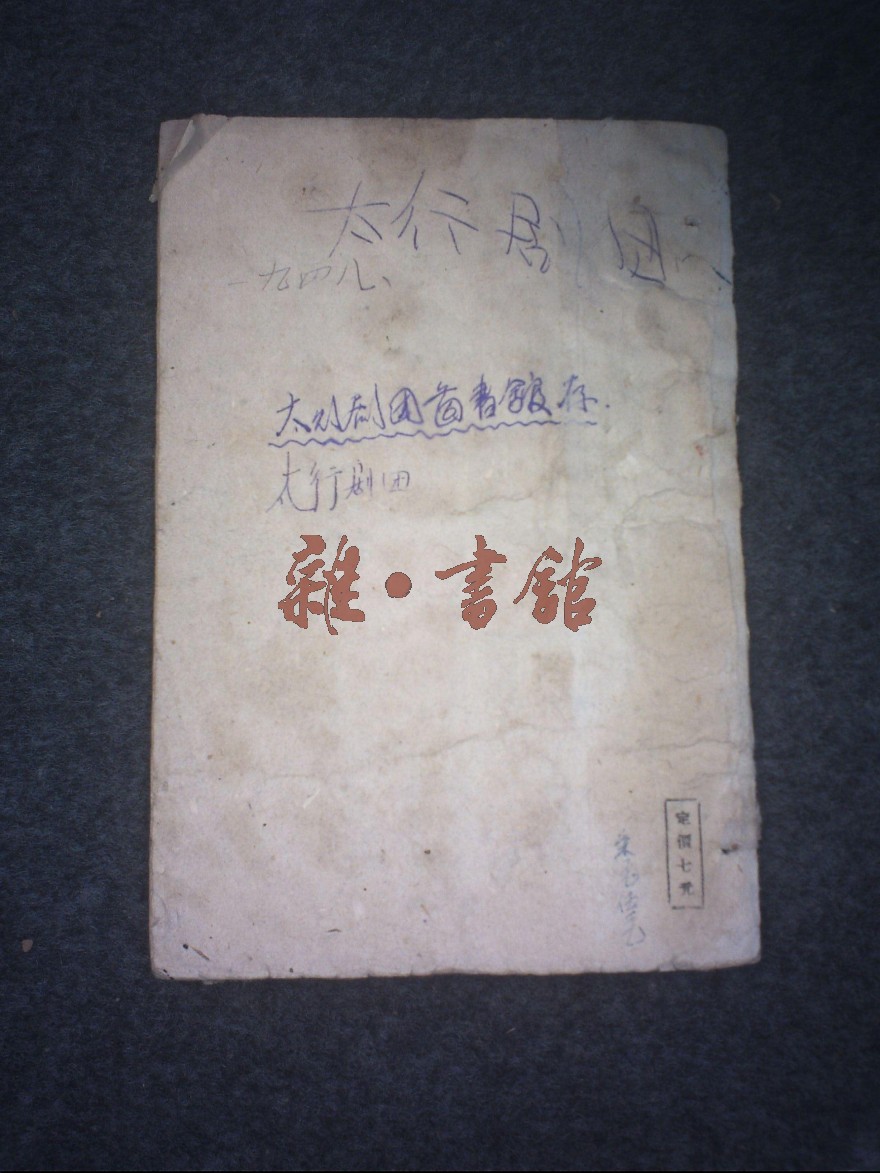 太行剧团
一九四八、
太行剧团图書館存.
太行剧团
雜·書館
定價七元